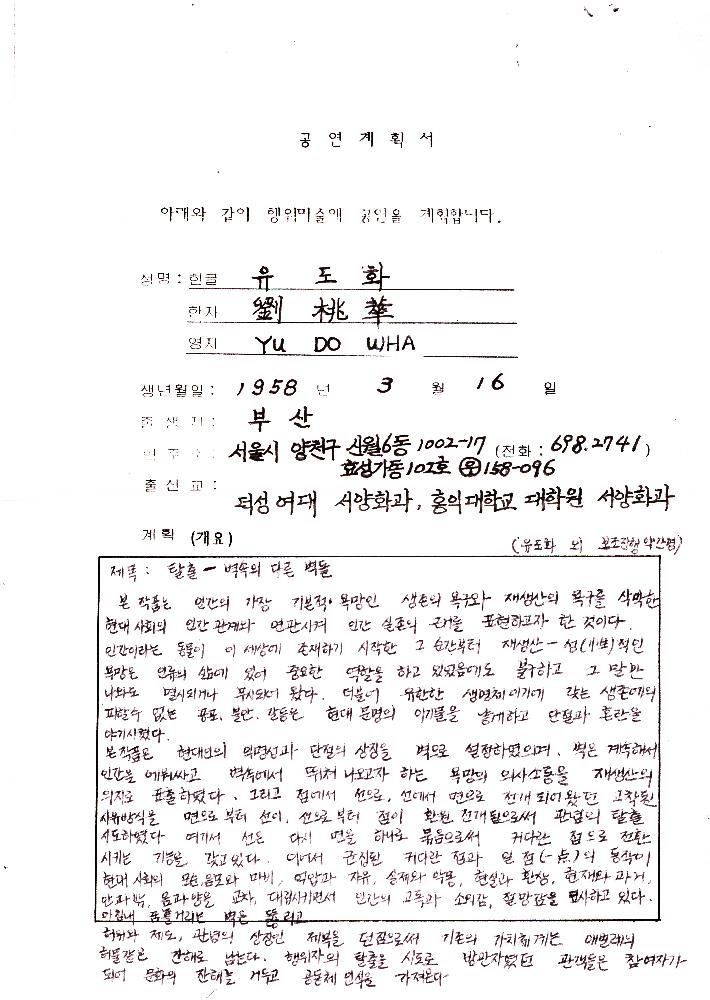 공 연 계 획 서
아래와 같이 행위미술에 공연을 계획합니다.
성명 : 한글 유 도 화
한자 劉 桃 華
영자 YU DO WHA
생년월일 : 1958 년 3 월 16 일
출 생 지 : 부 산
현 주 소 : 서울시 양천구 신월6동 1002-17 (전화 : 698.2741)
효성가동 102호 ㉾158-096
출 신 교 : 덕성여대 서양화과, 홍익대학교 대학원 서양화과
계획 (개요)
(유도화 외 보조진행 약간명)
제목 : 탈출 - 벽속의 다른 벽들
본 작품은 인간의 가장 기본적 욕망인 생존의 욕구와 재생산의 욕구를 삭막한
현대 사회의 인간관계와 연관시켜 인간 실존의 문제를 표현하고자 한 것이다.
인간이라는 동물이 이 세상에 존재하기 시작한 그 순간부터 재생산 - 성(性)적인
욕망은 인류의 삶에 있어 중요한 역할을 하고 있었음에도 불구하고 그 말만
나와도 멸시되거나 무시되어 왔다. 더불어 유한한 생명체이기에 갖는 생존에의
피할수 없는 공포, 불안, 갈등은 현대 문명의 이기물을 낳게하고 단절과 혼란을
야기시켰다.
본작품은 현대인의 익명성과 단절의 상징을 벽으로 설정하였으며, 벽은 계속해서
인간을 에워싸고 벽속에서 뛰쳐 나오고자 하는 욕망의 의사소통을 재생산의
의지로 표출하였다. 그리고 점에서 선으로, 선에서 면으로 전개 되어 왔던 고착된
사유방식을 면으로 부터 선이, 선으로 부터 점이 환원 전개됨으로써 관념의 탈출
시도하였다 여기서 선은 다시 면을 하나로 묶음으로써 커다란 점으로 전환
시키는 기능을 갖고있다. 더나서 군집된 커다란 점과 일 점(一点)의 동작이
현대 사회의 모든 음모와 마비, 억압과 자유, 실제와 악몽, 현실과 환상, 현재와 과거,
안과 밖, 음과 양을 교차, 대립시키면서 인간의 고독과 소외감, 절망감을 묘사하고 있다.
마침내 꿈틀거리는 벽은 뚫리고
허위와 제도, 관념의 상징인 제복을 던짐으로써 기존의 가치체계는 애벌레의
허물같은 잔해로 남는다. 행위자의 탈출을 시도로 방관자였던 관객들은 참여자가
되어 문화의 잔해를 거두고 공동체 인식을 가져온다